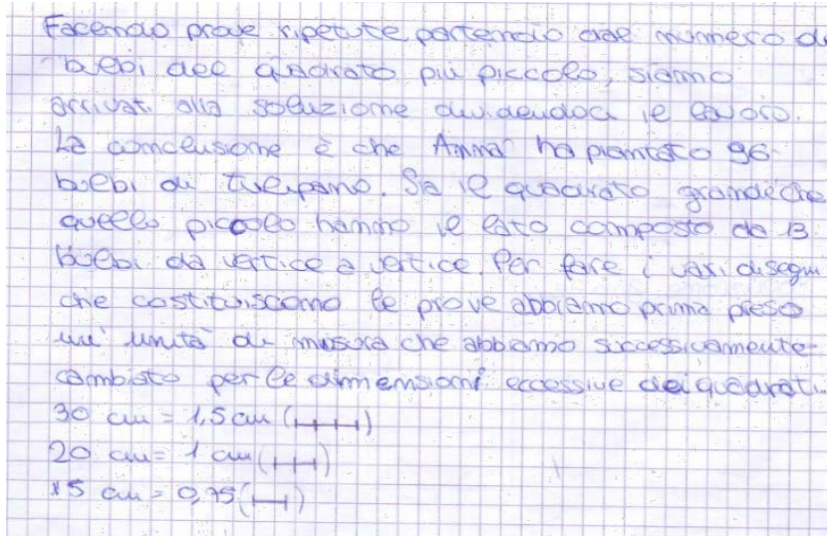 Facendo prove ripetute, partendo dal numero di
bulbi del quadrato più piccolo, siamo
arrivati alla soluzione dividendoci il lavoro.
La conclusione è che Anna ha piantato 96
bulbi di tulipano. Sia il quadrato grande che
quello piccolo hanno il lato composto da 13
bulbi da vertice a vertice. Per fare i vari disegni
che costituiscono le prove abbiamo prima preso
un' unità di misura che abbiamo successivamente
cambiato per le dimensioni eccessive dei quadrati.
30 cm = 1,5 cm
20 cm = 1 cm
15 cm = 0,75